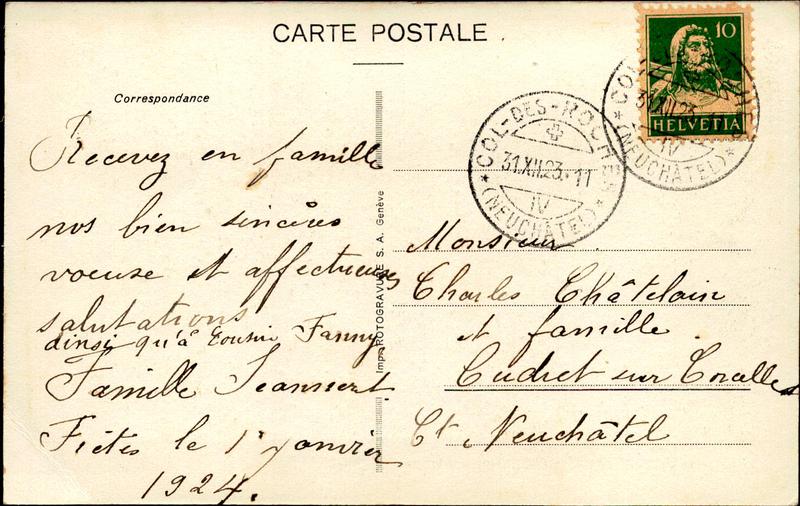 CARTE POSTALE
Correspondance
Recevez en famille
nos bien sincères
voeuse et affectueuses
salutations
ainsi qu'à Cousin Fanny
Famille Jeanneret
Fiètes le 1er janvier
1924.
Imp. ROTOGRAVURE S. A. Genève
10
HELVETIA
COL-DES-ROCHES
31.XII.23.-11
IV
(NEUCHÂTEL)
COL-DES-ROCHES
31.XII.23
IV
(NEUCHÂTEL)
Monsieur
Charles Châtelain
et famille
Cudret sur Corcelles
Ct Neuchâtel